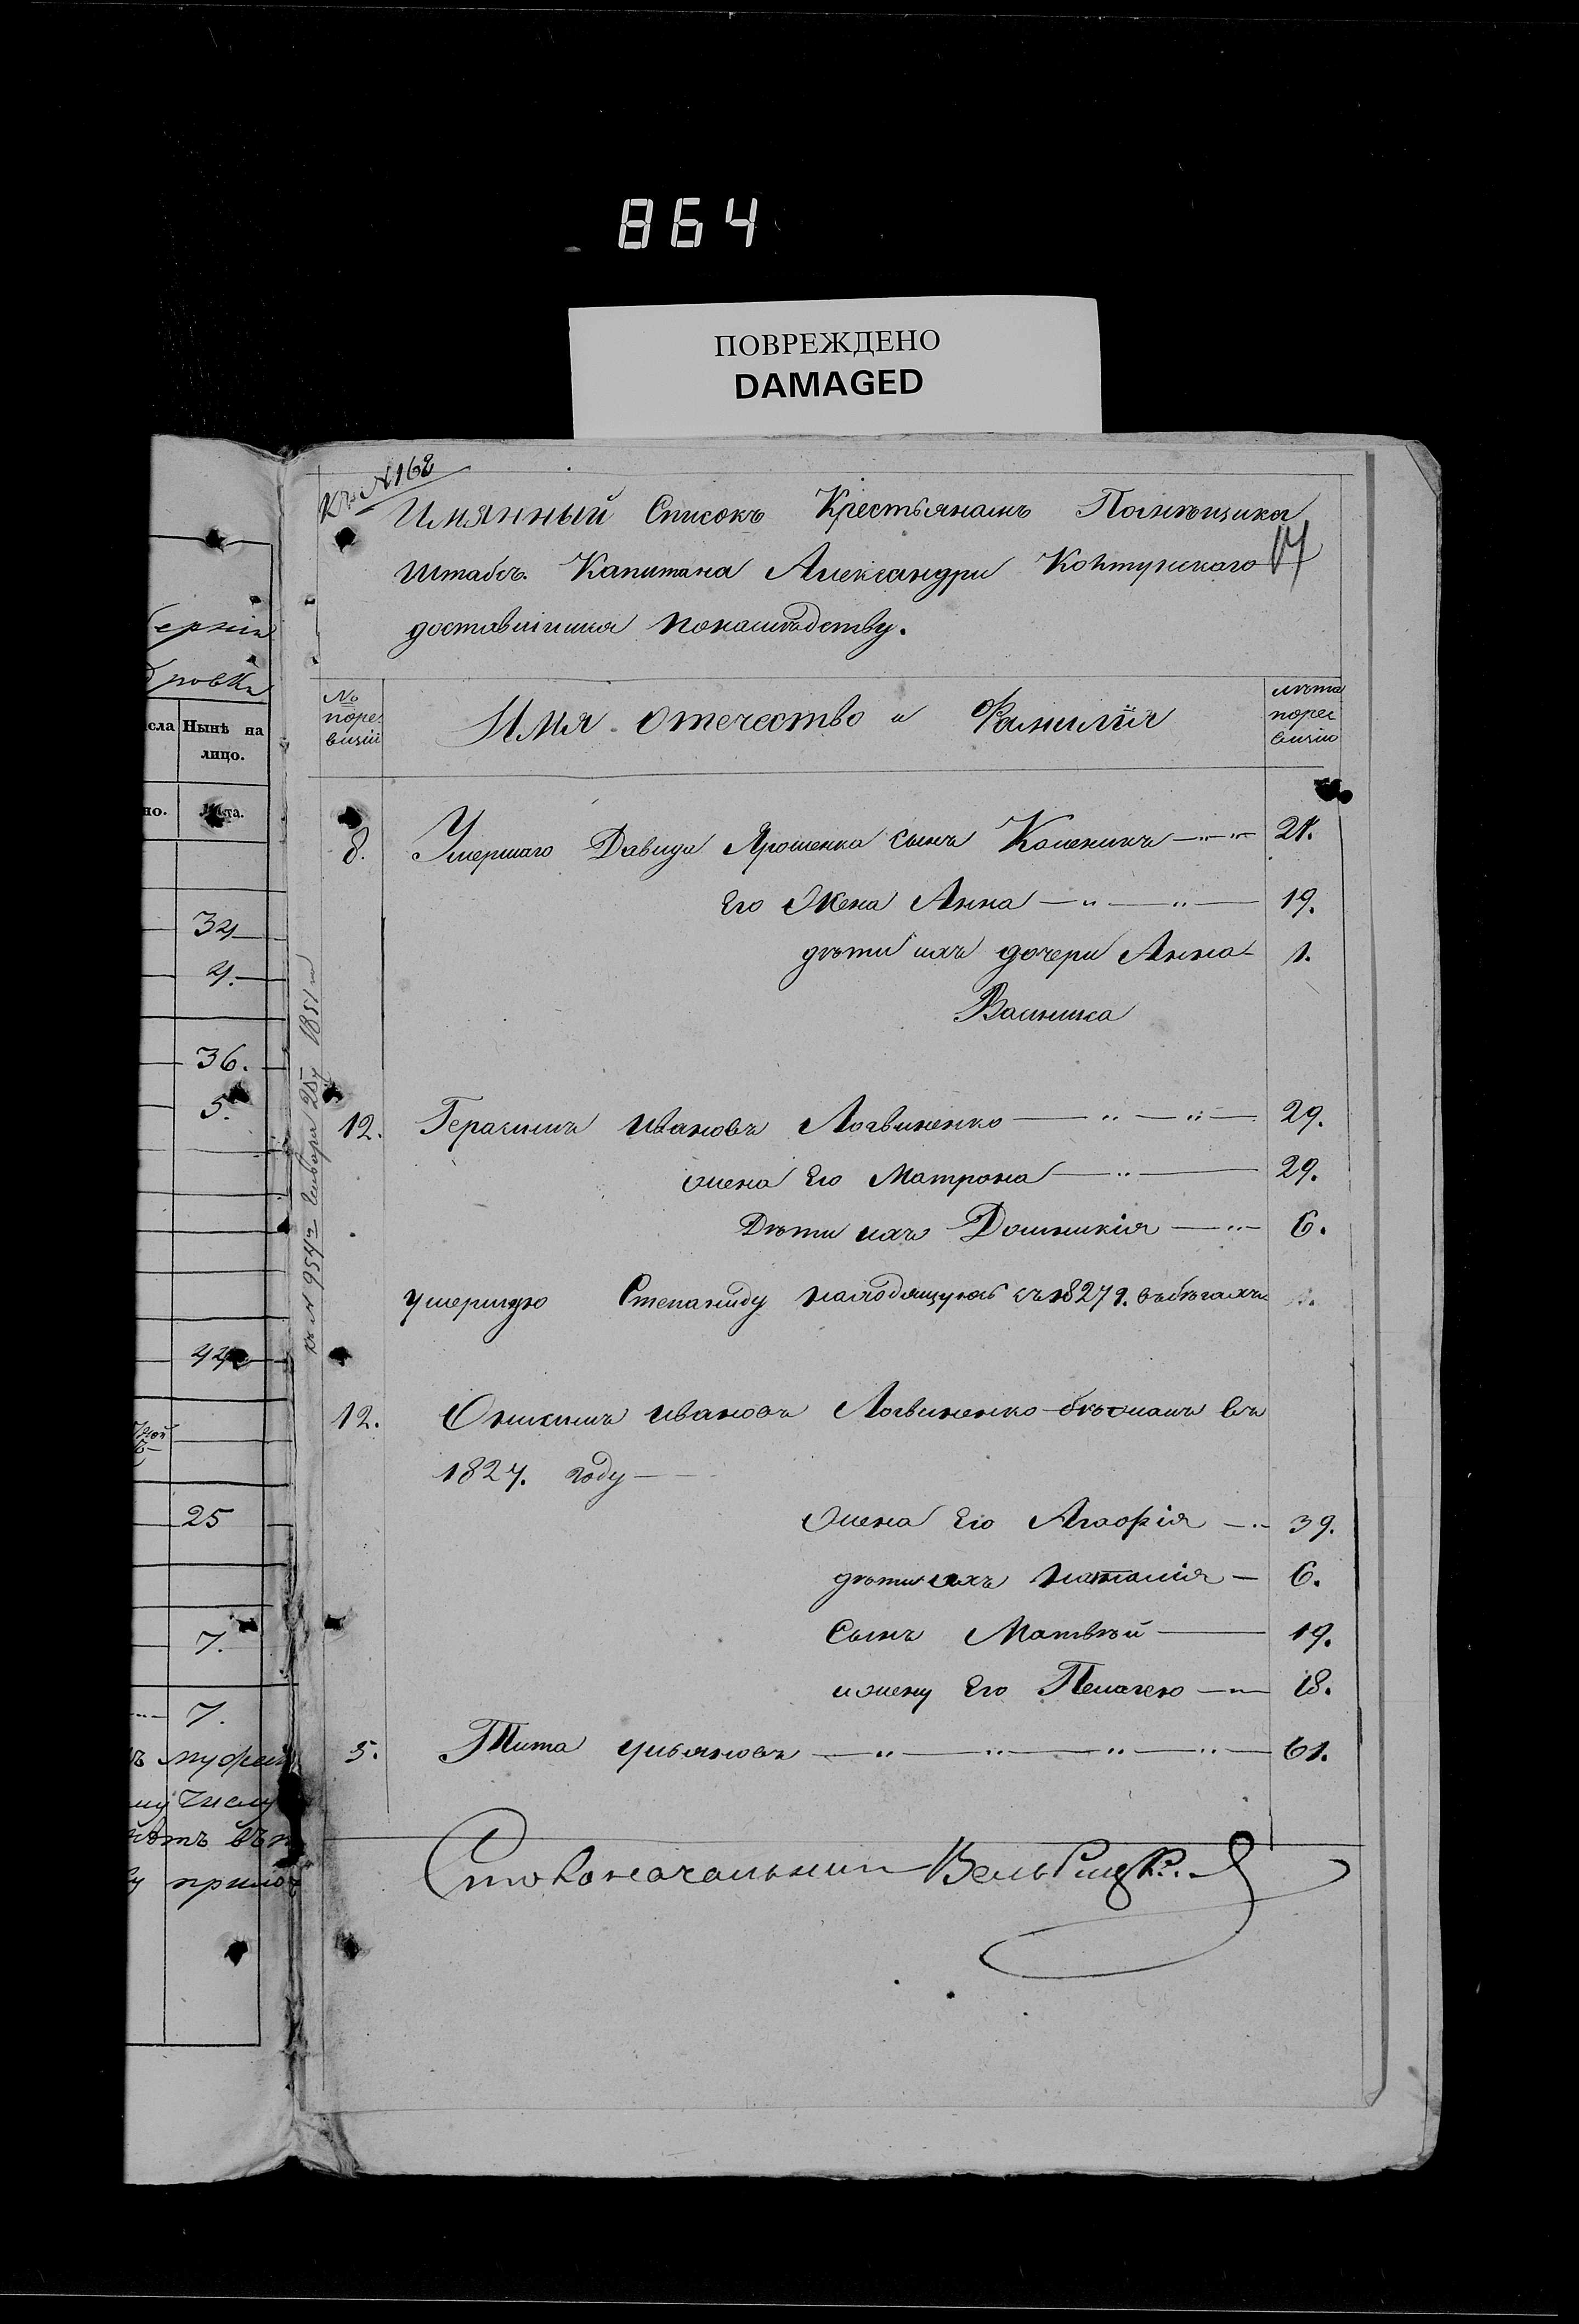 864
ПОВРЕЖДЕНО
DAMAGED
Къ № 162
Имянный Списокъ Крестьянамъ Помѣщика
Штабсъ. Капитана Александра 17
доставшимся понаслѣдству.
№ поре визіи
Имя Отечество и Фамилія
лѣта порев визіи
8. Умершаго Давида Ярошенка сынъ 21.
Его Жена Анна 19.
дѣти ихъ дочери Анна 1.
Василиса
12. Герасимъ Ивановъ Логвиненко 29.
жена Его Матрона 29.
Дѣти ихъ Домникія 6.
умершую Степаниду находящуюсь съ 1827 г. въ бѣгахъ
12. Онисимъ Ивановъ Логвиненко бѣжалъ въ
1827. году
Жена Его Агафія 39.
дѣти ихъ Наталія 6.
Сынъ Матвѣй 19.
и жену Его Пелагею 18.
5. Тита Ульяновъ 61.
Столоначальникъ
ерніи
сла
Нынѣ на
лицо.
но.
Лѣта.
34
4.
36.
5.
44
25
7.
7.
числу
1851